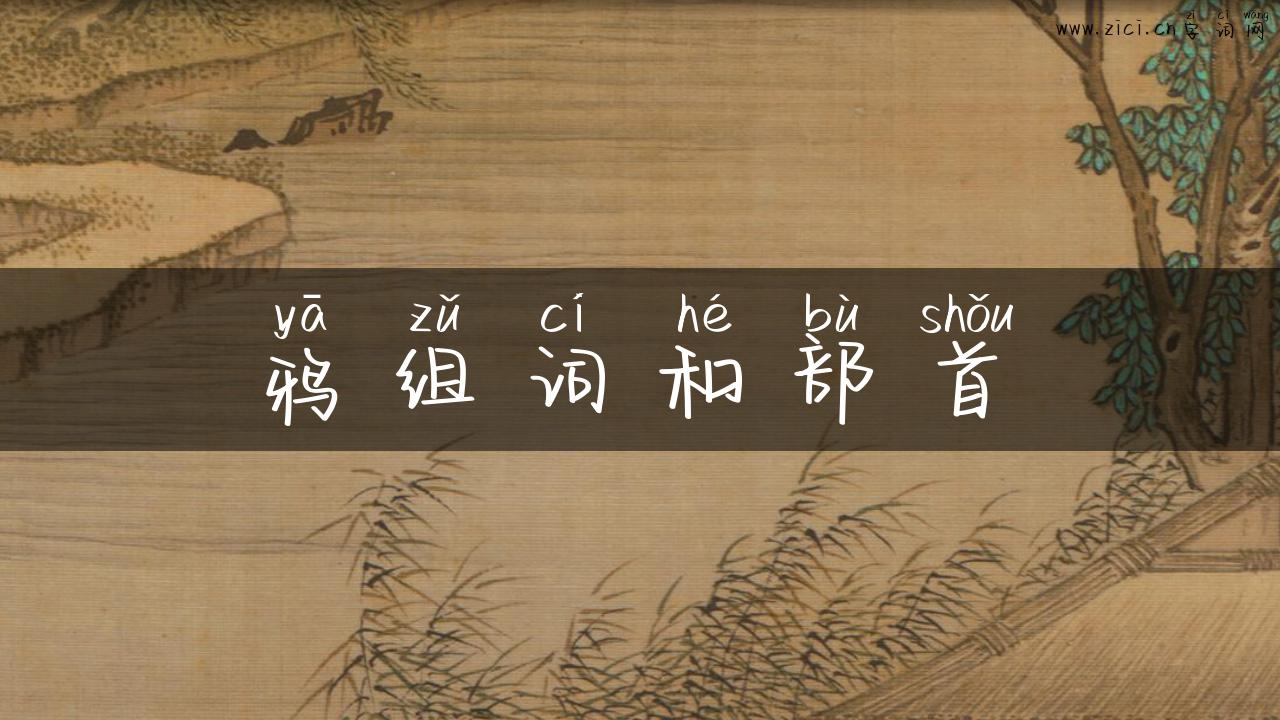 zì cí wǎng
www.zici.cn字词网
yā zǔ cí hé bù shǒu
鸦组词和部首